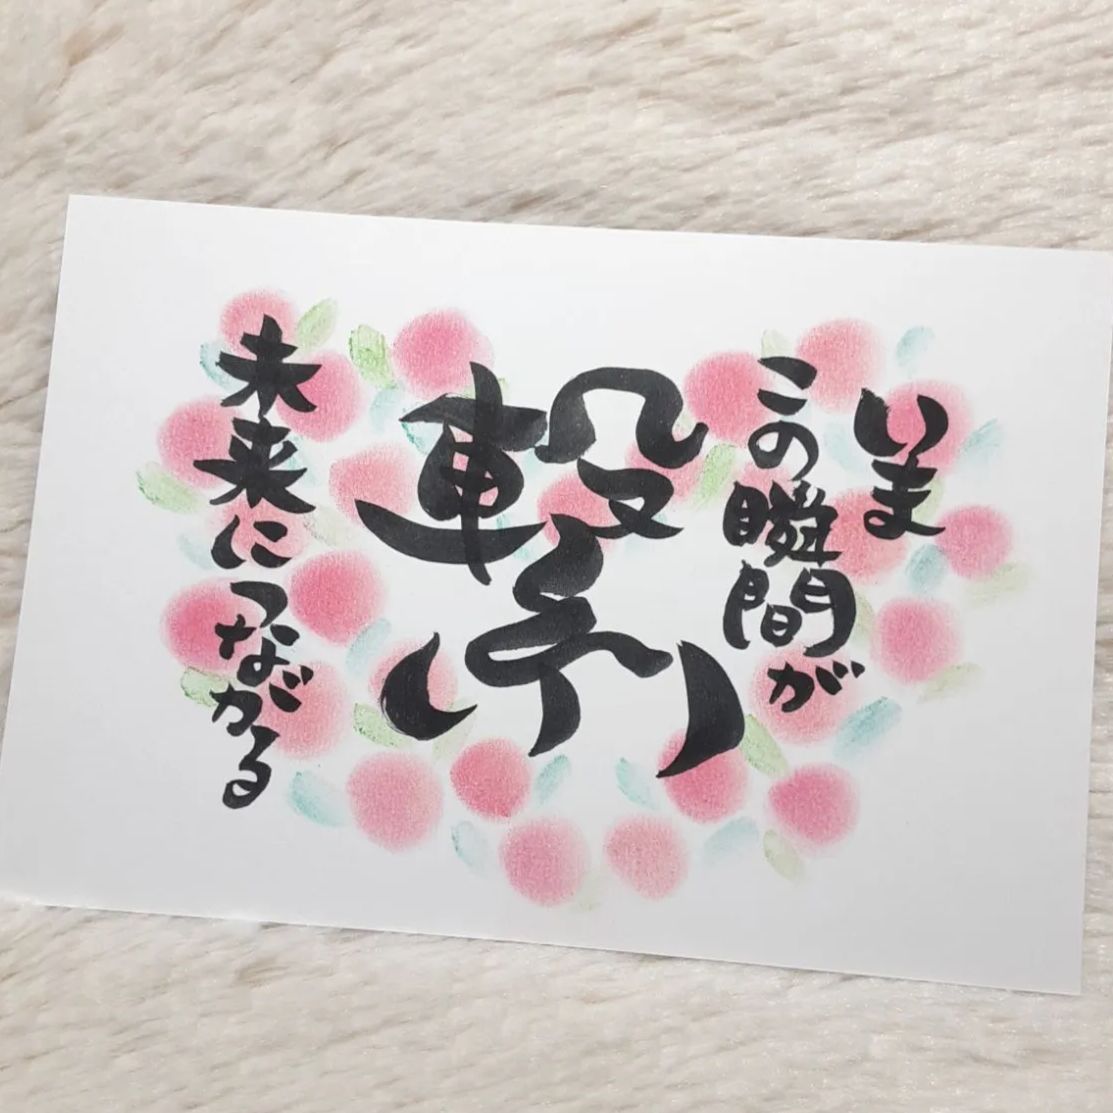 いま
この瞬間が
繋
未来につながる